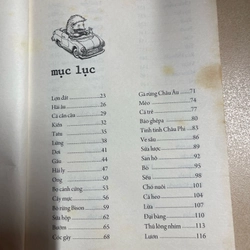 mục lục
Lợn đất 23
Hải âu 25
Cá cần câu 29
Kiến 32
Tatu 35
Lửng 38
Dơi 41
Gấu 44
Hải ly 47
Ong 50
Bọ cánh cứng 53
Cây mực 56
Bò rừng Bison 59
Sứa hộp 62
Bướm 65
Cóc gáy 68
Gà rừng Châu Âu 71
Mèo 74
Cá trê 77
Báo ghêpa 80
Tinh tinh Châu Phi 83
Ve sầu 86
Sứa lược 89
San hô 92
Bò 95
Sếu 98
Chó nuôi 101
Cá heo 104
Lừa 107
Đại bàng 110
Thú lông nhím 113
Lươn 116